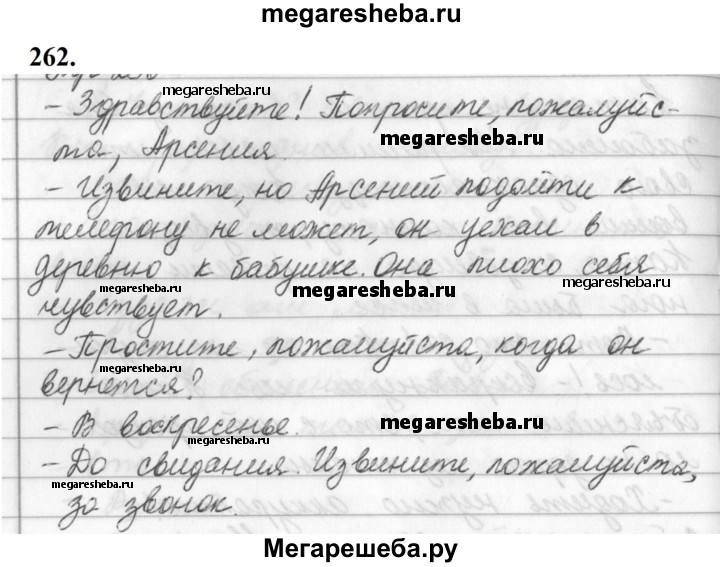 megaresheba.ru
262.
megaresheba.ru
– Здравствуйте! Попросите, пожалуйс-
та, Арсения.
megaresheba.ru
– Извините, но Арсений подойти к
телефону не может, он уехал в
деревню к бабушке. Она плохо себя
megaresheba.ru
megaresheba.ru
чувствует.
– Простите, пожалуйста, когда он
вернется?
– В воскресенье.
megaresheba.ru
megaresheba.ru
– До свидания. Извините, пожалуйста,
megaresheba.ru
за звонок.
Мегарешеба.ру